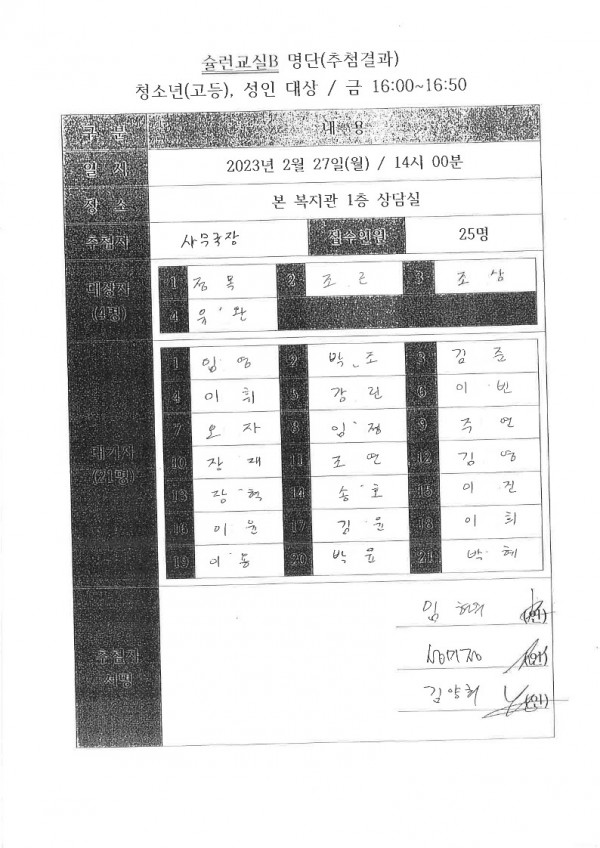 슐런교실B 명단(추첨결과)
청소년(고등), 성인 대상 / 금 16:00~16:50
구 분 내 용
일 시 2023년 2월 27일(월) / 14시 00분
장 소 본 복지관 1층 상담실
추첨자 사무국장 접수인원 25명
대상자
(4명)
1 정 목 2 조 르 3 조 상
4 유 완
대기자
(21명)
1 임 영 2 박 조 3 김 준
4 이 휘 5 강 린 6 이 빈
7 오 자 8 임 정 9 주 연
10 장 재 11 조 연 12 김 영
13 장 혁 14 송 호 15 이 진
16 이 윤 17 김 윤 18 이 희
19 이 용 20 박 윤 21 박 혜
추첨자
서명
임 (인)
(인)
김양희 (인)